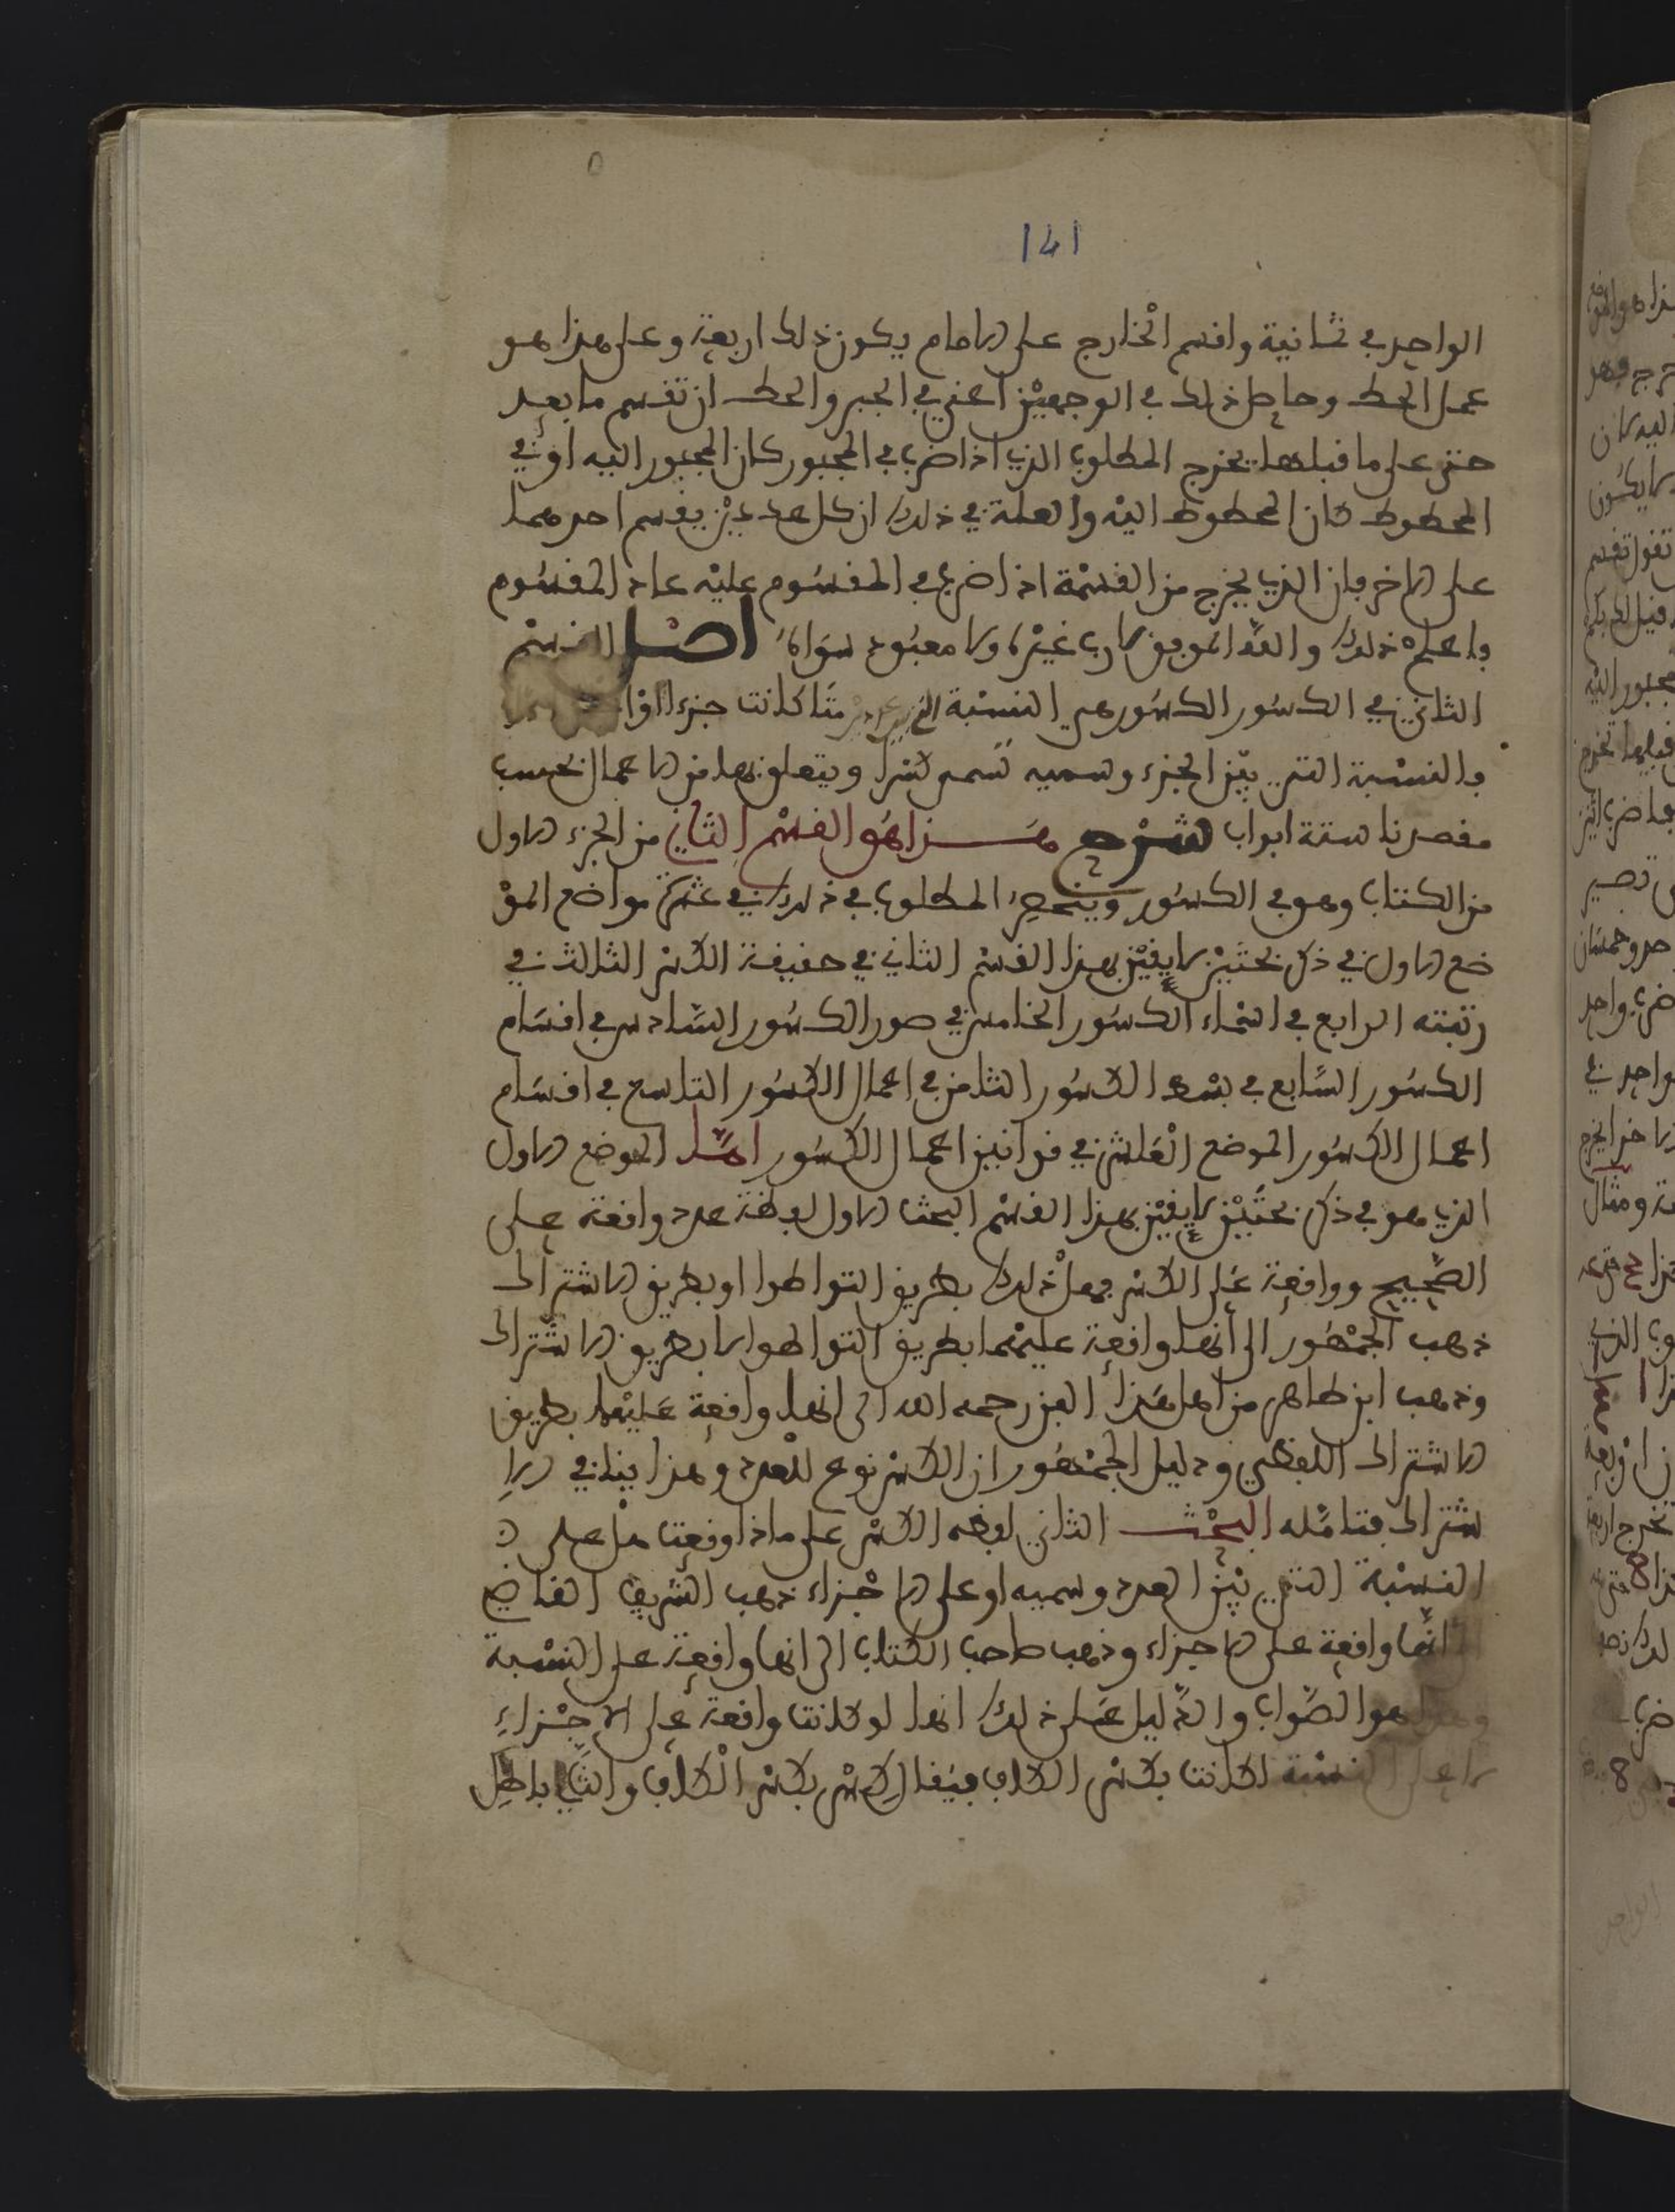 141
الواحد في ثمانية واقسم الخارج على الامام يكون ذلك اربعة وعلى هذا هو
عمل الحط وحاصل ذلك في الوجهين اعني في الجبر والحط ان تقسم ما بعد
حتى على ما قبلها يخرج المطلوب الذي اذا ضرب في المجبور كان المجبور اليه او في
المحطوط كان المحطوط اليه والعلة في ذلك ان كل عددين يقسم احدهما
على الاخر فان الذي يخرج من القسمة اذا ضرب في المقسوم عليه عاد المقسوم
فاعلم ذلك والله الموفق لا رب غيره ولا معبود سواه اصل القسم
الثاني في الكسور الكسور هي النسبة التي بين عددين متا كانت جزءا او
فالنسبة التي بين الجزء وسميه تسمى كسرا ويتعلق بها من الاعمال بحسب
مقصدنا ستة ابواب شرح هذا هو القسم الثاني من الجزء الاول
من الكتاب وهو في الكسور وينحصر المطلوب في ذلك في عشرة مواضع المو
ضع الاول في ذكر بحثين لايقين بهذا القسم الثاني في حقيقة الكسر الثالث في
رتبته الرابع في اسماء الكسور الخامس في صور الكسور السادس في اقسام
الكسور السابع في بسط الكسور الثامن في اعمال الكسور التاسع في اقسام
اعمال الكسور الموضع العاشر في قوانين اعمال الكسور امّا الموضع الاول
الذي هو في ذكر بحثين لايقين بهذا القسم البحث الاول لفظة عدد واقعة على
الصحيح وواقعة على الكسر فهل ذلك بطريق التواطوا او بطريق الاشتراك
ذهب الجمهور الى أنها واقعة عليهما بطريق التواطوا لا بطريق الاشتراك
وذهب ابن طاهر من اهل هذا الفن رحمه الله الى انها واقعة عليهما بطريق
الاشتراك اللفظي ودليل الجمهور ان الكسر نوع للعدد وهذا ينافي الا
شتراك فتامّله البحث الثاني لفظة الكسر على ماذا وقعت هل على
النسبة التي بين العدد وسميه او على الاجزاء ذهب الشريف القاضي
انها واقعة على الاجزاء وذهب صاحب الكتاب الى انها واقعة على النسبة
وهذا هو الصّواب والدّليل على ذلك انها لو كانت واقعة على الاجزاءِ
لا على النسبة لكانت بكسر الكاف فيقال كِسْر بكسر الكاف والتّالي باطل